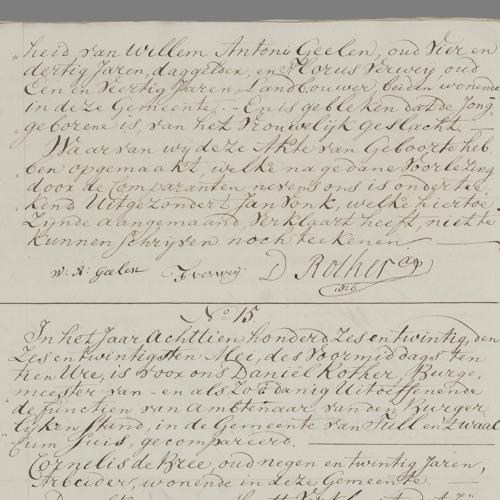 heid van Willem Antoni Geelen, oud Vier en
dertig Jaren, daggelder, en Florus Verweij oud
Een en Veertig Jaren, Landbouwer, beidan wonende
in deze Gemeente. - En is gebleken dat de Jong
geborene is, van het Vrouwelijk geslacht. —
Waar van wij deze Akte van Geboorte heb
ben opgemaakt, welke na gedane Voorlezing
door de Comparanten nevens ons is onderte„
kend Uitgezonderd Jan Vonk, welke hiertoe
Zijnde aangemaand, Verklaart heeft, niet te
kunnen schrijven noch teekenen. —
W: A: Geelen F verweij D Rother
1826
No 15
In het Jaar Achttien honderd Zes en twintig, den
Zes en twintigsten Mei, des Voormiddags ten
tien Ure, is voor ons Daniel Rother, Burge„
meester van - en als Zoodanig Uitoeffenende
de functien van Ambtenaar van den Burger„
lijken Stand, in de Gemeente van Tull en 't waal
Cum Suis, gecompareerd. —
Cornelis de Kree, oud negen en twintig Jaren,
Arbeider, wonende in deze Gemeente.